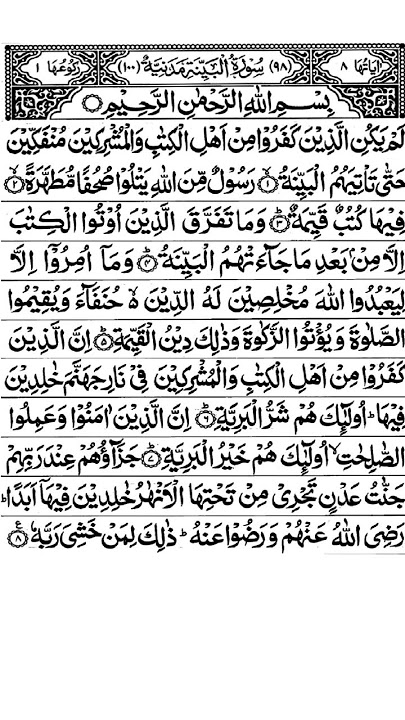 اٰيَاتُهَا ٨ (٩٨) سُوْرَةُ الْبَيِّنَةِ مَدَنِيَّةٌ (١٠٠) رُكُوْعُهَا ١
بِسْمِ اللّٰهِ الرَّحْمٰنِ الرَّحِيْمِ
لَمْ يَكُنِ الَّذِيْنَ كَفَرُوْا مِنْ اَهْلِ الْكِتٰبِ وَالْمُشْرِكِيْنَ مُنْفَكِّيْنَ
حَتّٰى تَاْتِيَهُمُ الْبَيِّنَةُ ۙ﴿١﴾ رَسُوْلٌ مِّنَ اللّٰهِ يَتْلُوْا صُحُفًا مُّطَهَّرَةً ۙ﴿٢﴾
فِيْهَا كُتُبٌ قَيِّمَةٌ ؕ﴿٣﴾ وَمَا تَفَرَّقَ الَّذِيْنَ اُوْتُوا الْكِتٰبَ
اِلَّا مِنْۢ بَعْدِ مَا جَآءَتْهُمُ الْبَيِّنَةُ ؕ﴿٤﴾ وَمَاۤ اُمِرُوْۤا اِلَّا
لِيَعْبُدُوا اللّٰهَ مُخْلِصِيْنَ لَهُ الدِّيْنَ ۙ۬ حُنَفَآءَ وَيُقِيْمُوا
الصَّلٰوةَ وَيُؤْتُوا الزَّكٰوةَ وَذٰلِكَ دِيْنُ الْقَيِّمَةِ ؕ﴿٥﴾ اِنَّ الَّذِيْنَ
كَفَرُوْا مِنْ اَهْلِ الْكِتٰبِ وَالْمُشْرِكِيْنَ فِيْ نَارِ جَهَنَّمَ خٰلِدِيْنَ
فِيْهَا ؕ اُولٰٓئِكَ هُمْ شَرُّ الْبَرِيَّةِ ؕ﴿٦﴾ اِنَّ الَّذِيْنَ اٰمَنُوْا وَعَمِلُوا
الصّٰلِحٰتِ ۙ اُولٰٓئِكَ هُمْ خَيْرُ الْبَرِيَّةِ ؕ﴿٧﴾ جَزَآؤُهُمْ عِنْدَ رَبِّهِمْ
جَنّٰتُ عَدْنٍ تَجْرِيْ مِنْ تَحْتِهَا الْاَنْهٰرُ خٰلِدِيْنَ فِيْهَاۤ اَبَدًا ؕ
رَضِيَ اللّٰهُ عَنْهُمْ وَرَضُوْا عَنْهُ ؕ ذٰلِكَ لِمَنْ خَشِيَ رَبَّهٗ ﴿٨﴾ ع